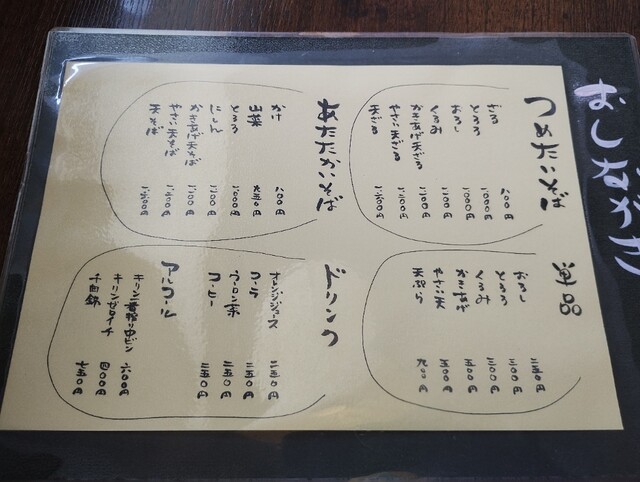 おしながき
つめたいそば
ざる 八〇〇円
とろろ 一、〇〇〇円
おろし 一、〇〇〇円
くるみ 一、一〇〇円
かきあげ天ざる 一、一〇〇円
やさい天ざる
天ざる
単品
おろし 二五〇円
とろろ 三〇〇円
くるみ 三〇〇円
かきあげ
やさい天 五〇〇円
天ぷら 九〇〇円
あたたかいそば
かけ 八〇〇円
山菜 九五〇円
とろろ 一、〇〇〇円
にしん 一、一〇〇円
かきあげ天そば 一、一〇〇円
やさい天そば
天そば
ドリンク
オレンジジュース 二五〇円
コーラ 二五〇円
ウーロン茶 二五〇円
コーヒー
アルコール
キリン一番搾り中ビン 六〇〇円
キリンゼロイチ 四〇〇円
千曲錦 七五〇円